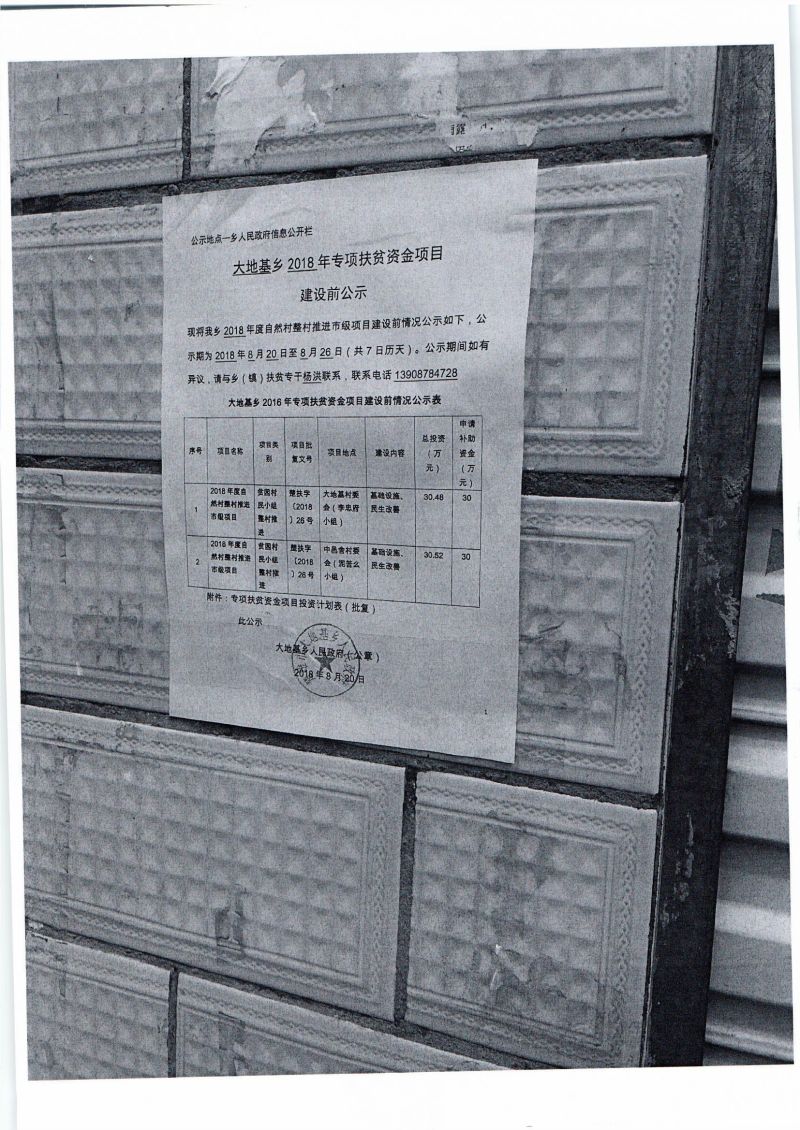 公示地点—乡人民政府信息公开栏
大地基乡 2018 年专项扶贫资金项目
建设前公示
现将我乡 2018 年度自然村整村推进市级项目建设前情况公示如下，公
示期为 2018 年 8 月 20 日至 8 月 26 日（共 7 日历天）。公示期间如有
异议，请与乡（镇）扶贫专干杨洪联系，联系电话 13908784728
大地基乡 2016 年专项扶贫资金项目建设前情况公示表
序号 项目名称 项目类别 项目批复文号 项目地点 建设内容 总投资（万元） 申请补助资金（万元）
1 2018 年度自然村整村推进市级项目 贫困村民小组整村推进 楚扶字〔2018〕26 号 大地基村委会（李忠府小组） 基础设施、民生改善 30.48 30
2 2018 年度自然村整村推进市级项目 贫困村民小组整村推进 楚扶字〔2018〕26 号 中邑舍村委会（小组） 基础设施、民生改善 30.52 30
附件：专项扶贫资金项目投资计划表（批复）
此公示
大地基乡人民政府（公章）
2018 年 8 月 20 日
1